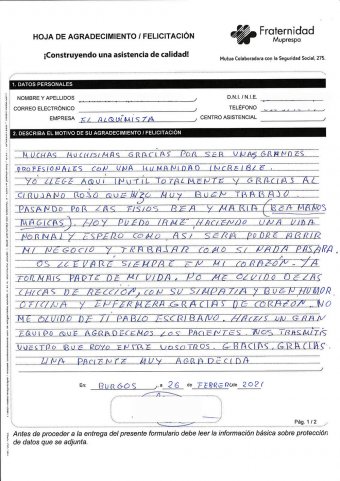 HOJA DE AGRADECIMIENTO / FELICITACIÓN
Fraternidad
Muprespa
¡Construyendo una asistencia de calidad!
Mutua Colaboradora con la Seguridad Social, 275.
1. DATOS PERSONALES
NOMBRE Y APELLIDOS D.N.I. / N.I.E.
CORREO ELECTRÓNICO TELÉFONO
EMPRESA EL ALQUIMISTA CENTRO ASISTENCIAL
2. DESCRIBA EL MOTIVO DE SU AGRADECIMIENTO / FELICITACIÓN
MUCHAS MUCHISIMAS GRACIAS POR SER UNAS GRANDES
PROFESIONALES CON UNA HUMANIDAD INCREIBLE.
YO LLEGE AQUI INUTIL TOTALMENTE Y GRACIAS AL
CIRUJANO ROJO QUE HIZO MUY BUEN TRABAJO
PASANDO POR LAS FISIOS BEA Y MARIA (BEA MANOS
MAGICAS). HOY PUEDO IRME HACIENDO UNA VIDA
NORMAL Y ESPERO COMO ASI SERA PODRE ABRIR
MI NEGOCIO Y TRABAJAR COMO SI NADA PASARA.
OS LLEVARE SIEMPRE EN MI CORAZÓN. YA
FORMAIS PARTE DE MI VIDA. NO ME OLVIDO DE LAS
CHICAS DE RECCIÓN, CON SU SIMPATIA Y BUEN HUMOR
OFICINA Y ENFERMERA GRACIAS DE CORAZON. NO
ME OLVIDO DE TI PABLO ESCRIBANO. HACEIS UN GRAN
EQUIPO QUE AGRADECEMOS LOS PACIENTES. NOS TRASMITIS
VUESTRO BUE ROYO ENTRE VOSOTROS. GRACIAS, GRACIAS
UNA PACIENTE MUY AGRADECIDA
En BURGOS, a 26 de FEBRERO de 2021
Pág. 1 / 2
Antes de proceder a la entrega del presente formulario debe leer la información básica sobre protección
de datos que se adjunta.